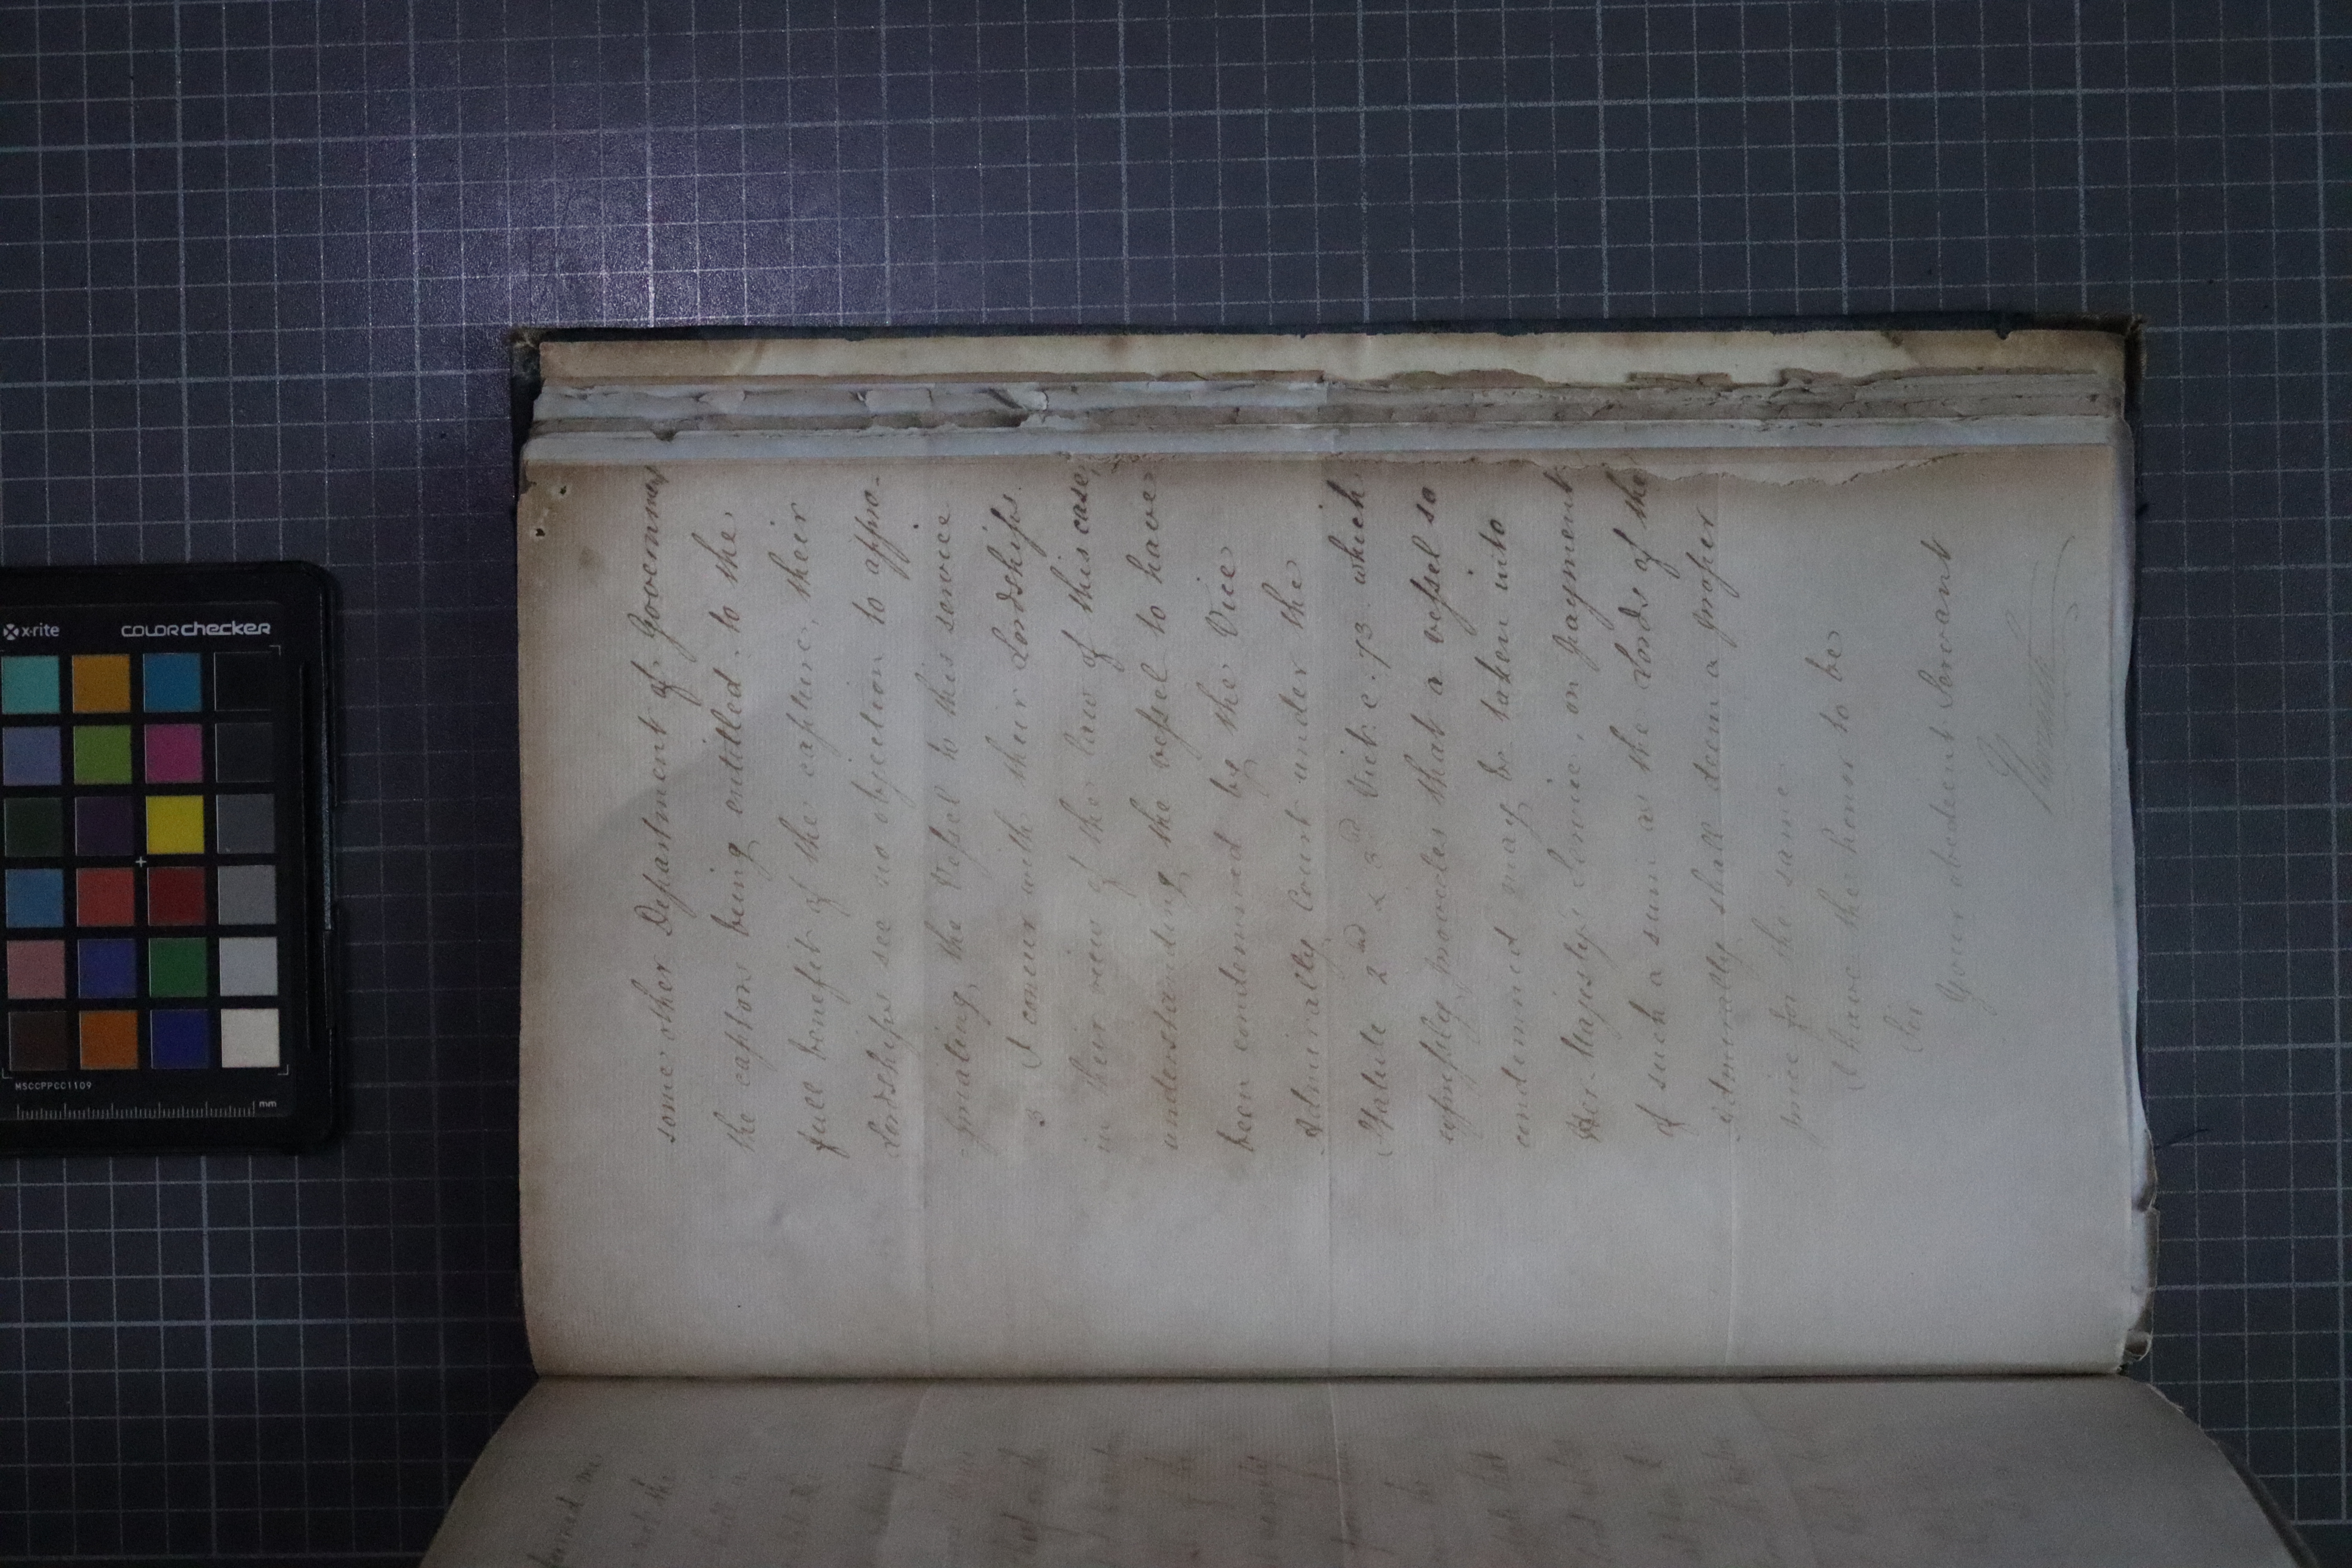 some other Department of Government
the captors being entitled to the
full benefit of the capture, their
Lordships see no objection to appro-
priating the Vessel to this service
3 I concur with their Lordships
in their view of the law of this case,
understanding the vessel to have
been condemned by the Vice
Admiralty Court under the
Statute 2nd & 3rd Vict: c. 73. which
expressly provides that a vessel so
condemned may be taken into
Her Majesty's Service, on payment
of such a sum as the Lords of the
Admiralty shall deem a proper
price for the same.
I have the honor to be
Sir
Your obedient Servant
x-rite
colorchecker
MSCCPPCC1109
mm